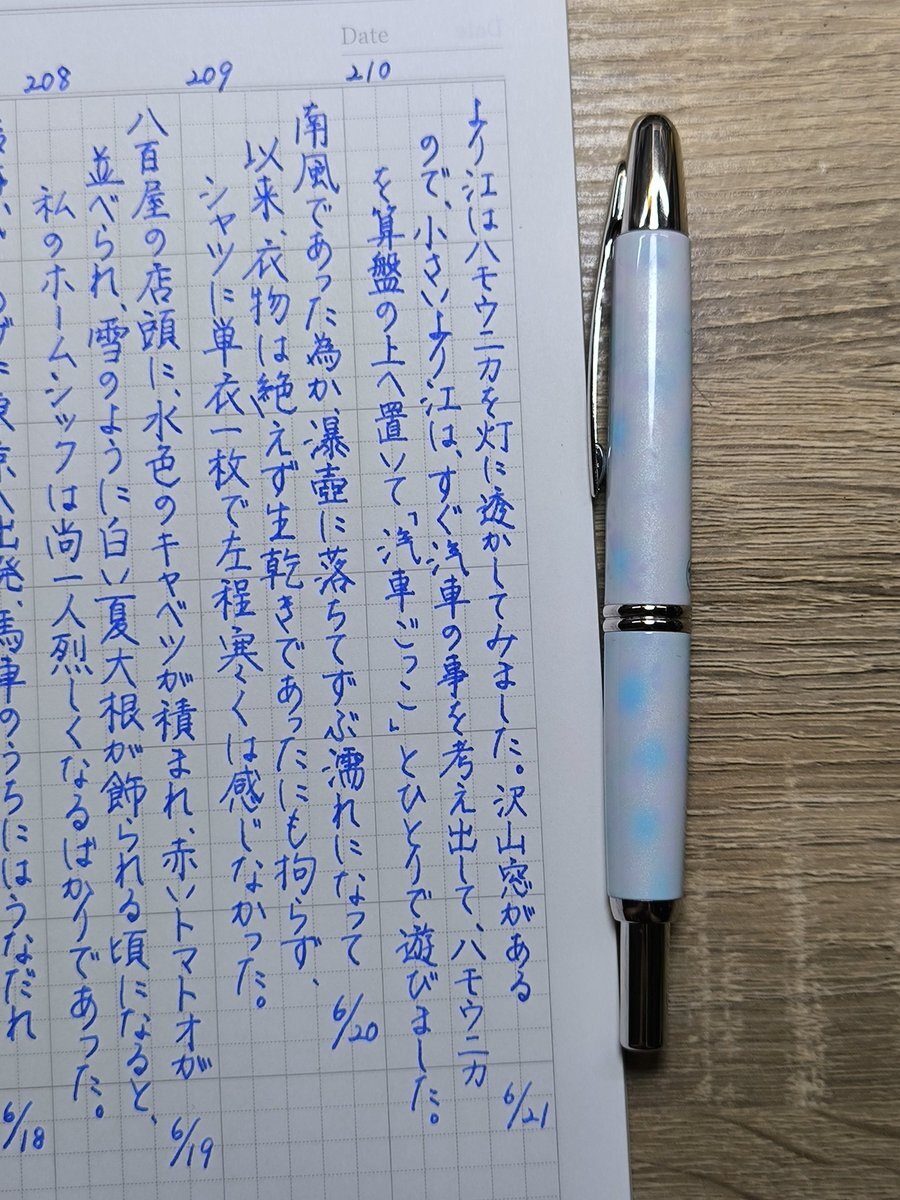 Date
210
より江はハモウニカを灯に透かしてみました。沢山窓がある
6/21
ので、小さいより江は、すぐ汽車の事を考え出して、ハモウニカ
を算盤の上へ置いて「汽車ごっこ」とひとりで遊びました。
209
南風であった為か、瀑壺に落ちてずぶ濡れになって
6/20
以来、衣物は絶えず生乾きであったにも拘らず、
シャツに単衣一枚で左程寒くは感じなかった。
208
八百屋の店頭に、水色のキャベツが積まれ、赤いトマトオが
6/19
並べられ、雪のように白い夏大根が飾られる頃になると、
私のホームシックは尚一入烈しくなるばかりであった。
出発、馬車のうちにはうなだれ
6/18